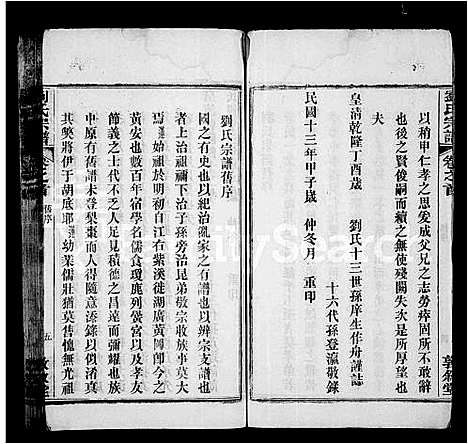 劉氏宗譜
卷之首
以稍申仁孝之思愛成父兄之志勞瘁固所不敢辭
也後之賢俊嗣而續之無使殘闕失次是所厚望也
夫
皇清乾隆丁酉歲　劉氏十三世孫庠生作舟謹誌
十六代孫登瀛敬錄
民國十三年甲子歲　仲冬月　重印
敦敘堂
劉氏宗譜舊序
國之有史也以紀治亂家之有譜也以辨宗支故孝
者上治祖禰下治子孫旁治昆弟敬宗收族事莫大
焉吾始祖於明初自江右紫溪徙湖廣黃陂即今之
黃安也數百年宿學名儒食瓊鹿列賢書以及孝友
節義之士代不乏人足見積德之昌達而彌耀也族
中原有舊譜未登梨棗而人得隨意添錄以似淆真
其獘將伊于胡底耶幼業儒壯猶莫售愧無光祖
劉氏宗譜
卷之首
舊序
五
敦敘堂
FamilySearch